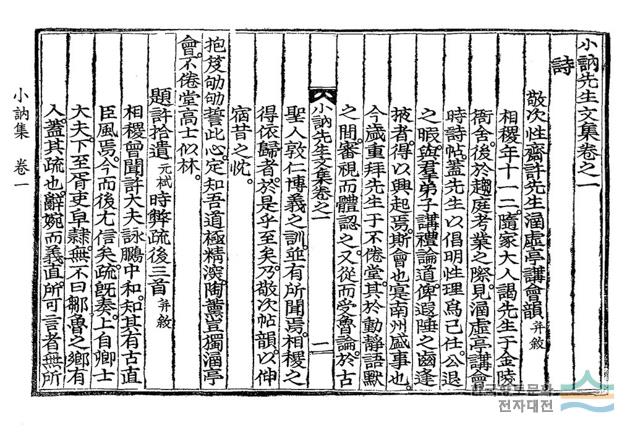 小訥先生文集卷之一
詩
敬次性齋許先生涵虛亭講會韻 并敘
相稷年十一二隨家大人謁先生于金陵
衙舍後於趨庭考業之際見涵虛亭講會
時詩帖盖先生以倡明性理爲己任公退
之暇與羣弟子講禮論道俾遐陲之齒逢
掖者得以興起焉斯會也寔南州盛事也
今歲重拜先生于不倦堂其於動靜語默
之間審視而體認之又從而受魯論於古
小訥先生文集卷之一 一
聖人敦仁博義之訓並有所聞焉相稷之
得依歸者於是乎至矣乃敬次帖韻以伸
宿昔之忱
抱笈劬劬誓此心定知吾道極精深陶薰豈獨涵亭
會不倦堂高士似林
題許拾遺 元栻 時弊疏後三首 并敘
相稷曾聞許大夫詠鵬中和知其有古直
臣風焉今而後尤信矣疏旣奏上自卿士
大夫下至胥吏皁隷無不曰鄒魯之鄕有
人蓋其疏也辭婉而義直所可言者無所
小訥集 卷一
전자대전